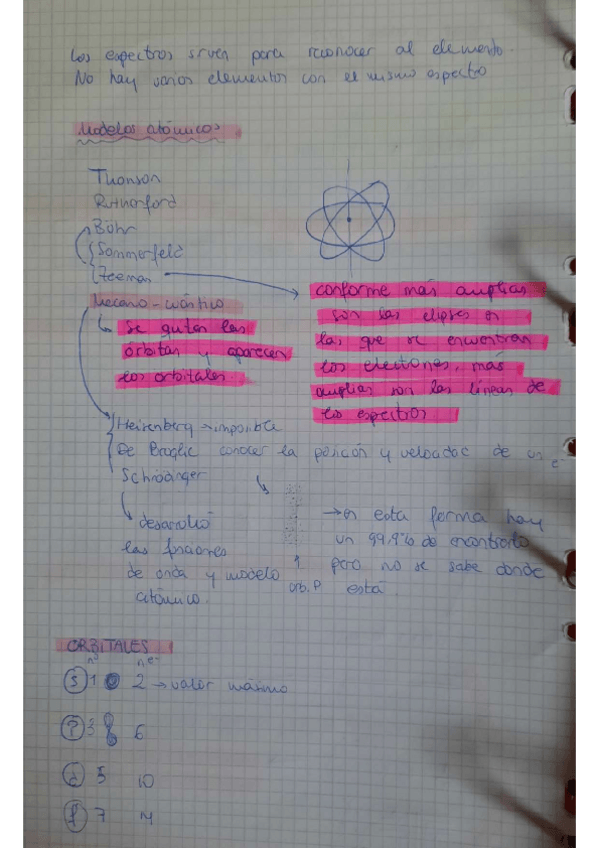 Los espectros sirven para reconocer al elemento.
No hay varios elementos con el mismo espectro
Modelos atómicos
Thonson
Rutherford
Böhr
Sommerfeld
Zeeman
Mecano-cuántico
Se quitan las
órbitas y aparecen
los orbitales.
conforme más amplias
son las elipses en
las que se encuentran
los electrones, más
amplias son las líneas de
los espectros
Heisenberg → imposible
De Broglie conocer la posición y velocidad de un e⁻
Schrödinger
desarrolló
las funciones
de onda y modelo
atómico.
orb. p
→ en esta forma hay
un 99,9% de encontrarlo
pero no se sabe donde
está
ORBITALES
nº nº e⁻
s 1 2 → valor máximo
p 3 6
d 5 10
f 7 14